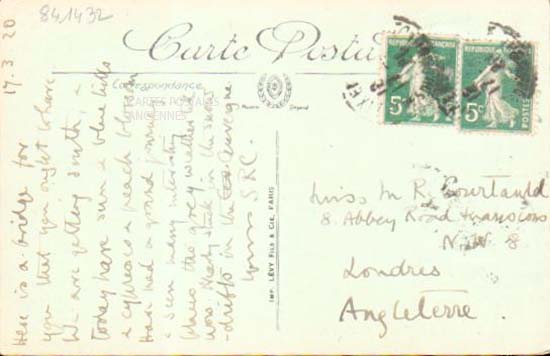 841432
Carte Postale
Correspondance
CARTES POSTALES
ANCIENNES
17.3.20
Here is a bridge for
you that you ought to have.
We are getting South, &
today have seen blue hills
a cypress & peach blossom
Have had a grand journey
& seen many interesting
grey weather
was. Nearly stuck in the snow
-drifts in the Auvergne
Yours SRC.
IMP. LÉVY FILS & CIE, PARIS
REPUBLIQUE FRANÇAISE
5c
REPUBLIQUE FRANÇAISE
5c
Miss M R. Courtauld
8. Abbey Road Mansions
N.W 8
Londres
Angleterre.